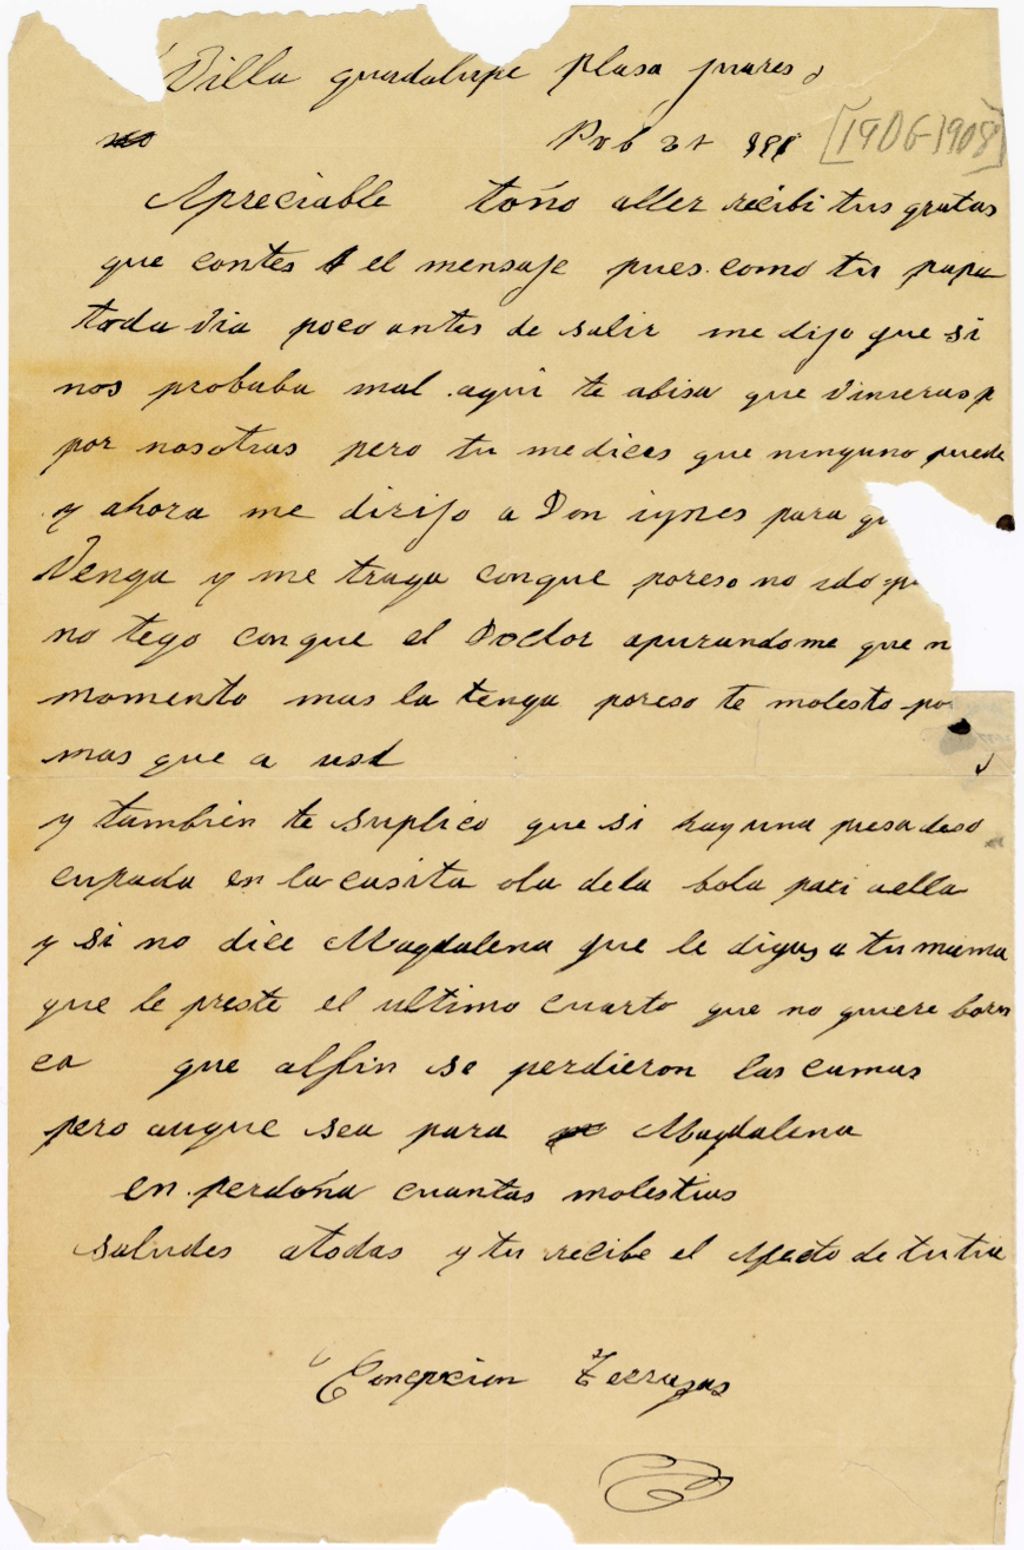 Villa guadalupe plasa juares
[1906-1908]
Apreciable toño aller recibi tus gratas
que contes t el mensaje pues como tu papa
toda via poco antes de salir me dijo que si
nos probaba mal aqui te abisa que vinieras p
por nosotras pero tu me dices que ninguno puede
y ahora me dirijo a Don iynes para q
Venga y me traya conque poreso no
no tego con que el Doctor apurandome que n
momento mas la tenga poreso te molesto po
mas que a usd
y tambien te suplico que si hay una piesa deso
cupada en la casita ola dela bola para aella
y si no dice Magdalena que le digas a tu mama
que le preste el ultimo cuarto que no quiere
ca que alfin se perdieron las camas
pero auque sea para Magdalena
en perdona cuantas molestias
saludes atodas y tu recibe el afecto de tu tia
Concepcion Terrazas